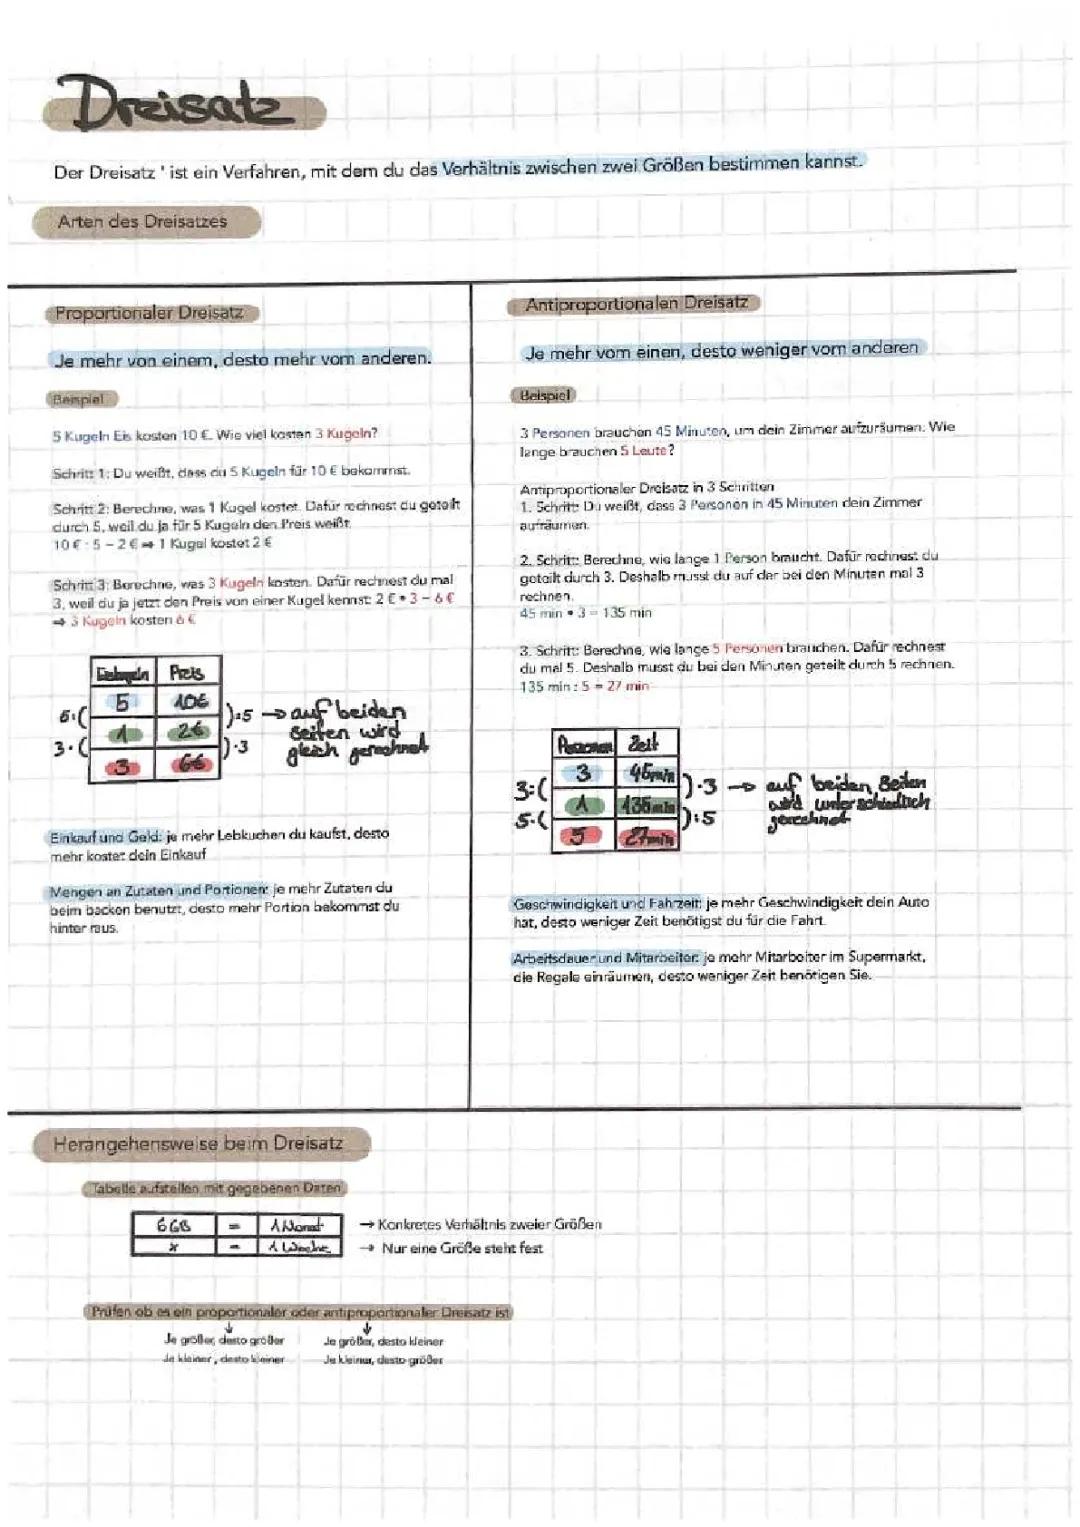 Dreisatz
Der Dreisatz ' ist ein Verfahren, mit dem du das Verhältnis zwischen zwei Größen bestimmen kannst.
Arten des Dreisatzes
Proportionaler Dreisatz
Je mehr von einem, desto mehr vom anderen.
Beispiel
5 Kugeln Eis kosten 10 €. Wie viel kosten 3 Kugeln?
Schritt 1: Du weißt, dass du 5 Kugeln für 10 € bekommst.
Schritt 2: Berechne, was 1 Kugel kostet. Dafür rechnest du geteilt
durch 5, weil du ja für 5 Kugeln den Preis weißt.
10 € : 5 = 2 € ➡ 1 Kugel kostet 2 €
Schritt 3: Berechne, was 3 Kugeln kosten. Dafür rechnest du mal
3, weil du ja jetzt den Preis von einer Kugel kennst: 2 € • 3 = 6 €
➡ 3 Kugeln kosten 6 €
Eiskugeln Preis
5 10€
5:( 1 2€ ):5 → auf beiden
Seiten wird
3·( 3 6€ )·3 gleich gerechnet
Einkauf und Geld: je mehr Lebkuchen du kaufst, desto
mehr kostet dein Einkauf
Mengen an Zutaten und Portionen: je mehr Zutaten du
beim backen benutzt, desto mehr Portion bekommst du
hinter raus.
Antiproportionalen Dreisatz
Je mehr vom einen, desto weniger vom anderen
Beispiel
3 Personen brauchen 45 Minuten, um dein Zimmer aufzuräumen. Wie
lange brauchen 5 Leute?
Antiproportionaler Dreisatz in 3 Schritten
1. Schritt: Du weißt, dass 3 Personen in 45 Minuten dein Zimmer
aufräumen.
2. Schritt: Berechne, wie lange 1 Person braucht. Dafür rechnest du
geteilt durch 3. Deshalb musst du auf der bei den Minuten mal 3
rechnen.
45 min • 3 = 135 min
3. Schritt: Berechne, wie lange 5 Personen brauchen. Dafür rechnest
du mal 5. Deshalb musst du bei den Minuten geteilt durch 5 rechnen.
135 min : 5 = 27 min
Personen Zeit
3 45min
3:( 1 135min )·3 → auf beiden Seiten
wird unterschiedlich
5·( 5 27min ):5 gerechnet
Geschwindigkeit und Fahrzeit: je mehr Geschwindigkeit dein Auto
hat, desto weniger Zeit benötigst du für die Fahrt.
Arbeitsdauer und Mitarbeiter: je mehr Mitarbeiter im Supermarkt,
die Regale einräumen, desto weniger Zeit benötigen Sie.
Herangehensweise beim Dreisatz
Tabelle aufstellen mit gegebenen Daten
6GB = 1 Monat → Konkretes Verhältnis zweier Größen
x = 1 Woche → Nur eine Größe steht fest
Prüfen ob es ein proportionaler oder antiproportionaler Dreisatz ist
↓ ↓
Je größer, desto größer Je größer, desto kleiner
Je kleiner, desto kleiner Je kleiner, desto größer